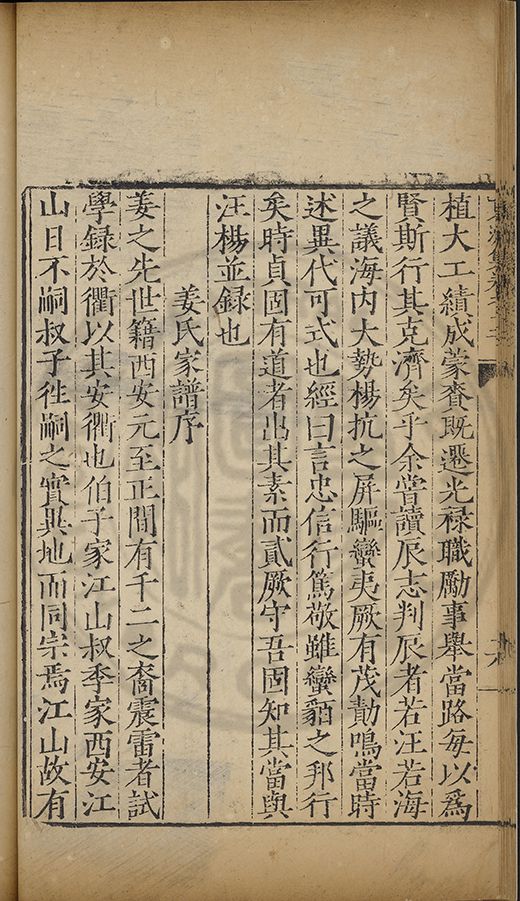 植大工績成蒙賚既遷光祿職勵事舉當路每以爲
賢斯行其克濟矣乎余嘗讀辰志判辰者若汪若海
之議海内大勢楊抗之屏驅蠻夷厥有茂勣鳴當時
述異代可式也經曰言忠信行篤敬雖蠻貊之邦行
矣時貞固有道者出其素而貳厥守吾固知其當與
汪楊並録也
姜氏家譜序
姜之先世籍西安元至正間有千二之裔震雷者試
學録於衢以其安衢也伯子家江山叔季家西安江
山日不嗣叔子徃嗣之實異地而同宗焉江山故有